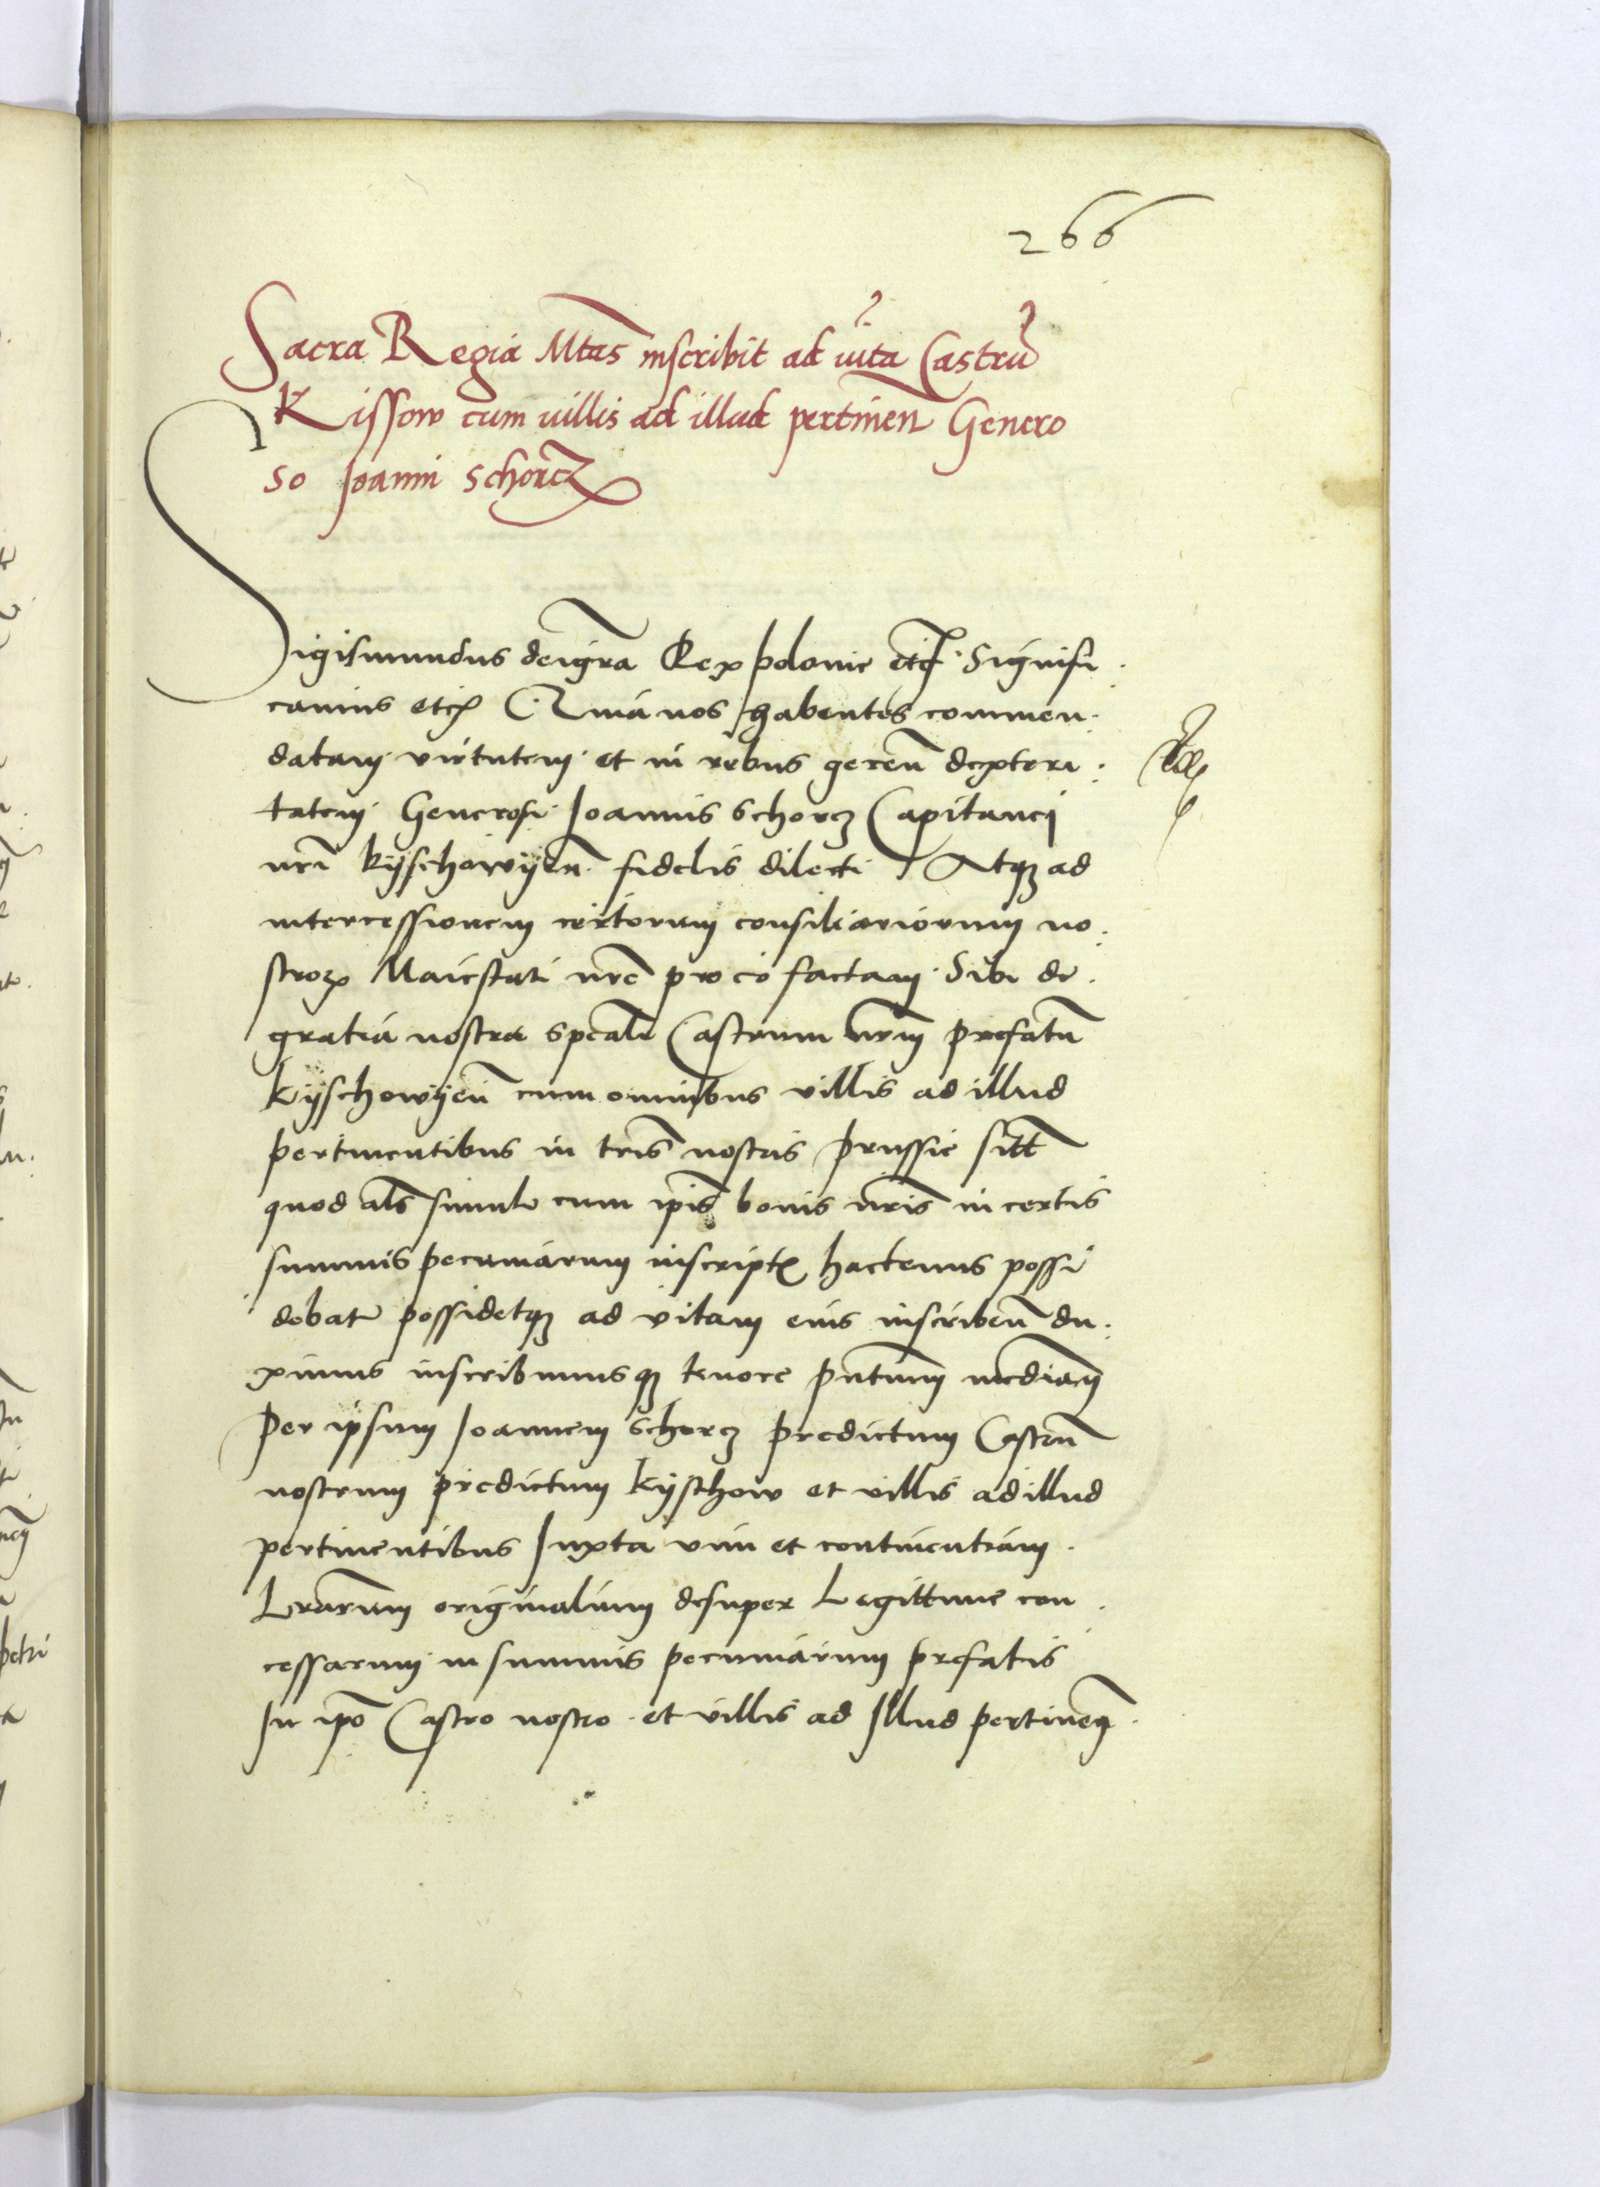 266
Sacra Regia Mtas inscribit ad uita Castru
Kissow cum uillis ad illud pertinen Genero
so Joanni Schorcz
Sigismundus dei gra Rex polonie etc. Signifi
camus etc. Quia nos habentes commen
datam virtutem et in rebus geren dexteri
tatem Generosi Joannis Schorcz Capitanej
nri kyschowyen fidelis dilecti Atq ad
intercessionem certorum consiliariorum no
stror Maiestati nre pro eo factam Sibi de
gratia nostra speali Castrum nrm prefatu
kyschowyen cum omnibus villis ad illud
pertinentibus in tris nostris prussie sitt
quod als simul cum ipis bonis nris in certis
summis pecuniarum inscript hactenus possi
debat possidetq ad vitam eius inscriben du
ximus inscribimusq tenore pntium mediam
per ipsum Joannem Schorcz predictum Castru
nostrum predictum kyschow et villis ad illud
pertinentibus Juxta vim et continentiam
Lrarum originalium desuper Legittime con
cessarum in summis pecuniarum prefatis
In ipo Castro nostro et villis ad Illud pertinen